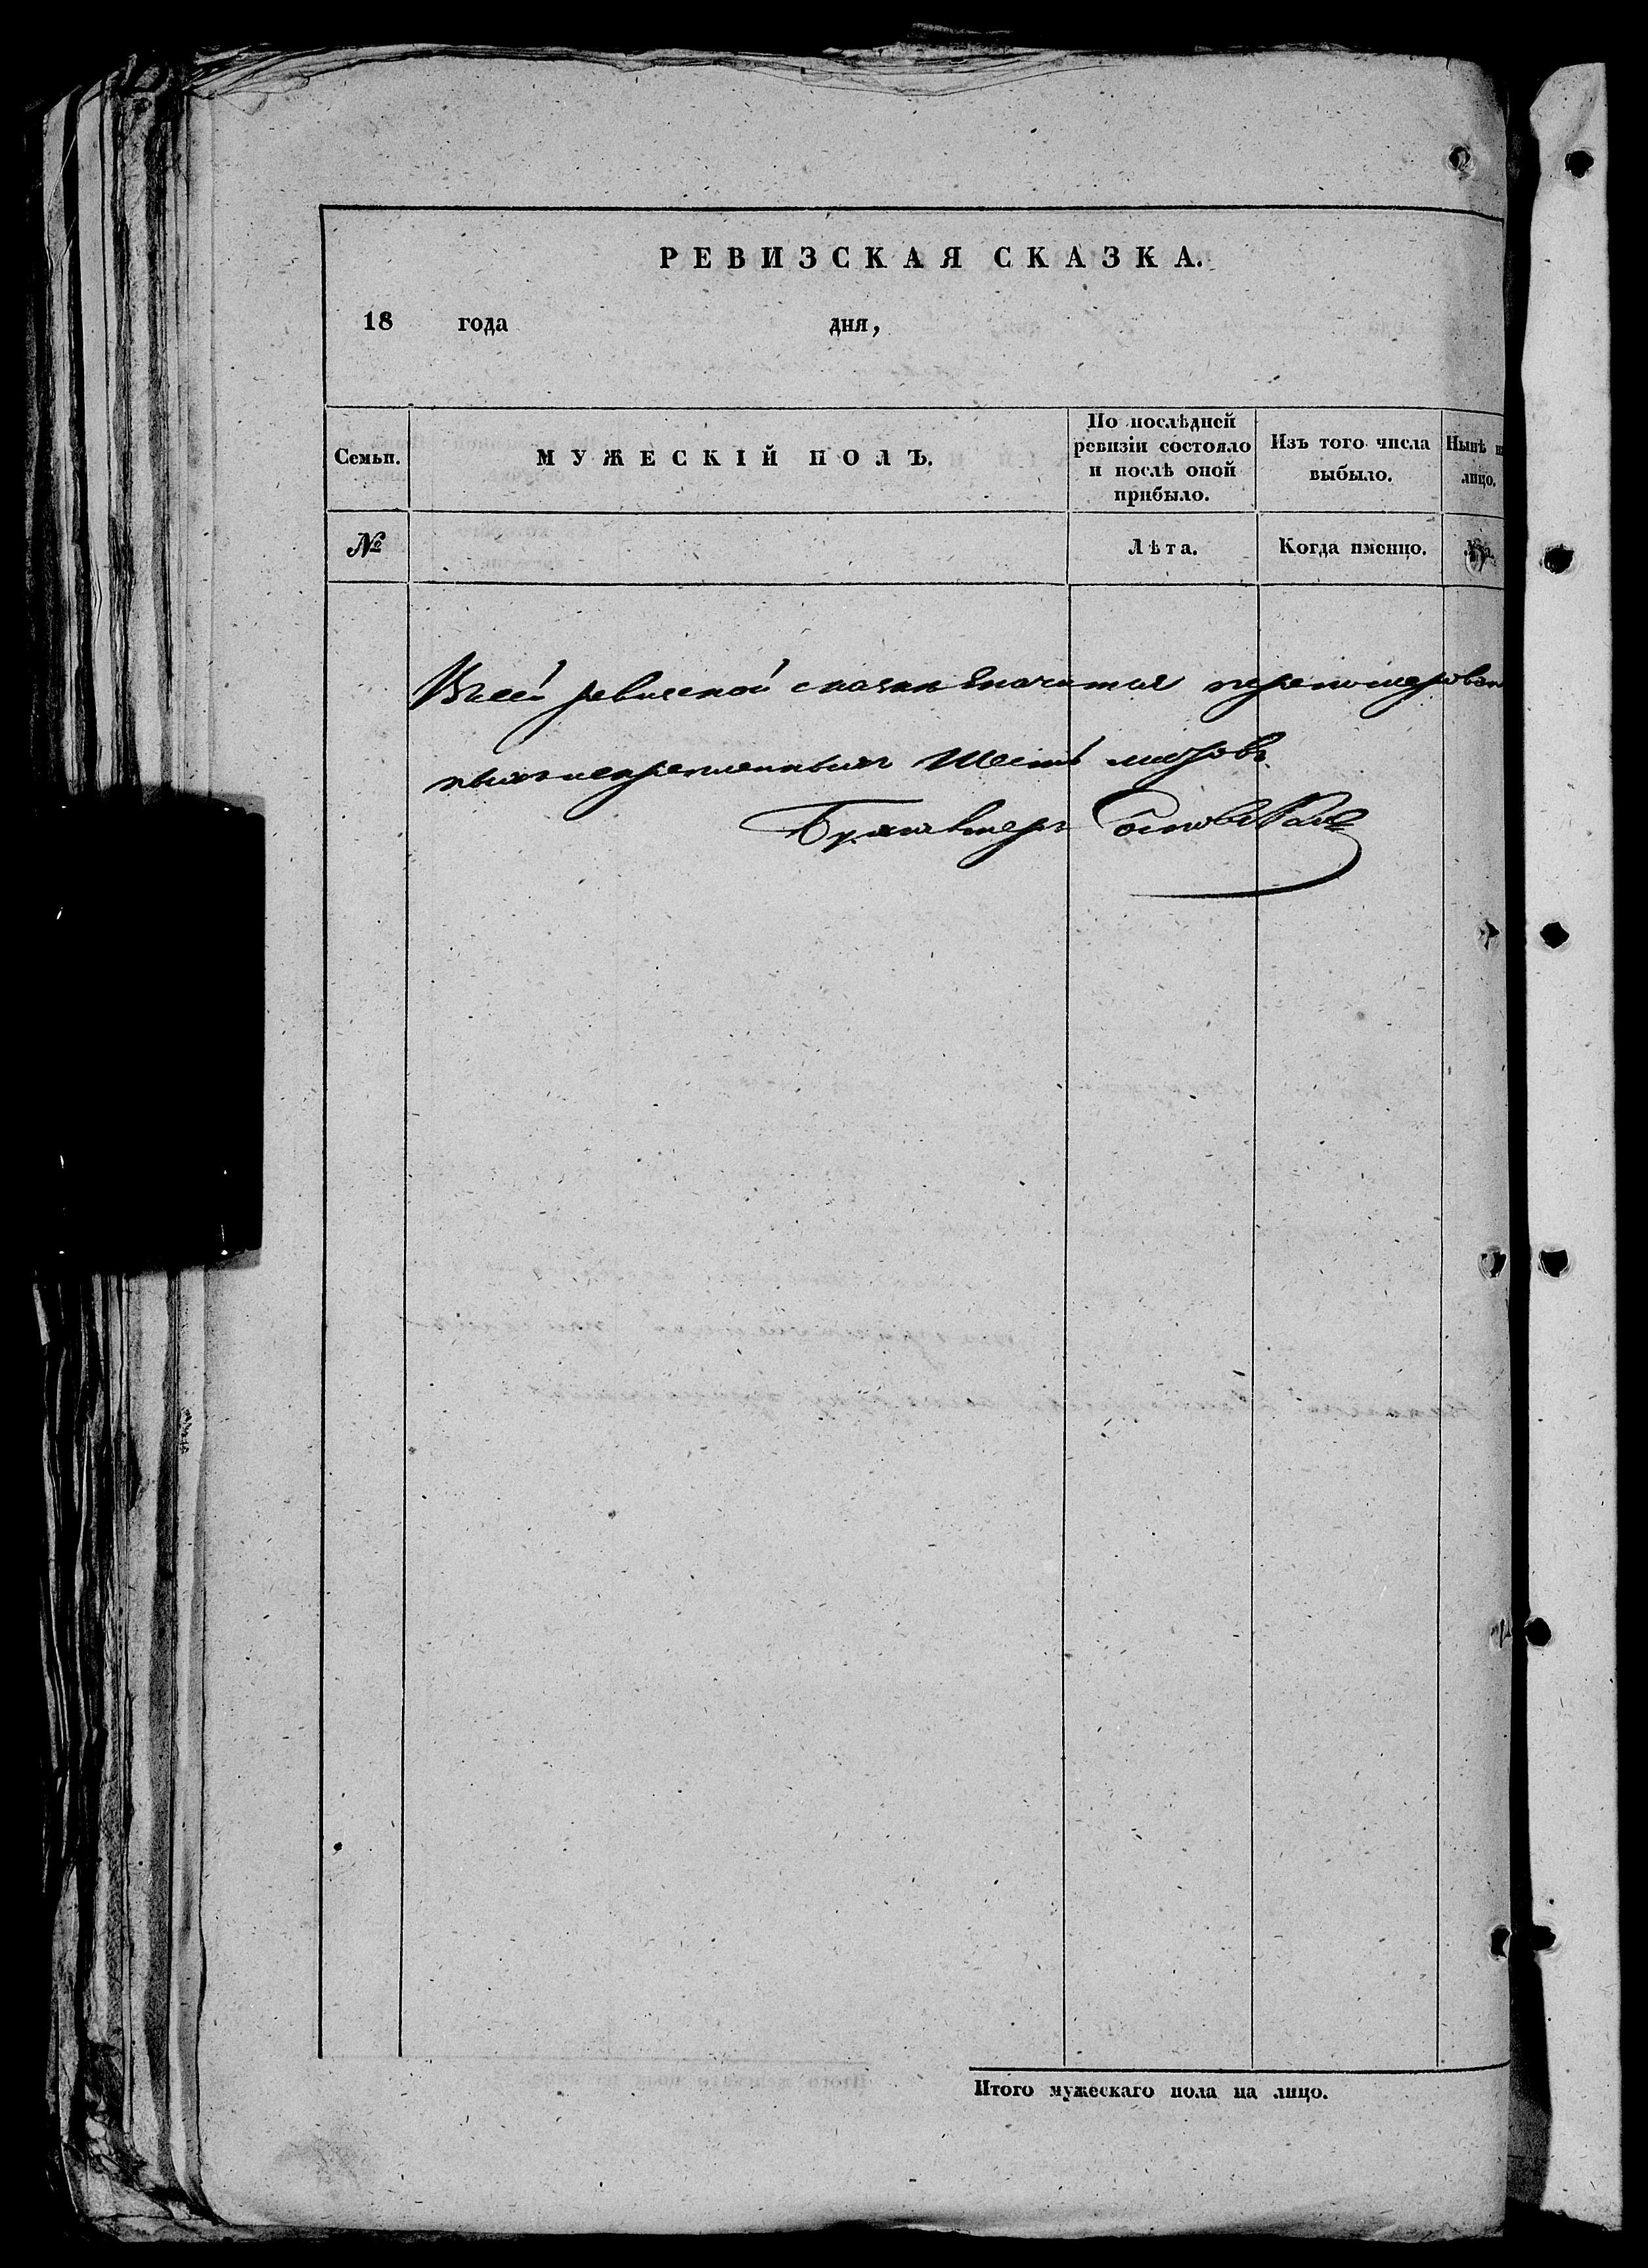 РЕВИЗСКАЯ СКАЗКА.
18 года дня,
Семьи.
МУЖЕСКІЙ ПОЛЪ.
По послѣдней
ревизіи состояло
и послѣ оной
прибыло.
Изъ того числа
выбыло.
Нынѣ н
лицо.
№
Лѣта.
Когда именно.
Лѣта.
Всей ревиской сказки значится перенумерован
ныхъ и скрепленныхъ шесть листовъ
Бухгалтеръ
Итого мужескаго пола на лицо.